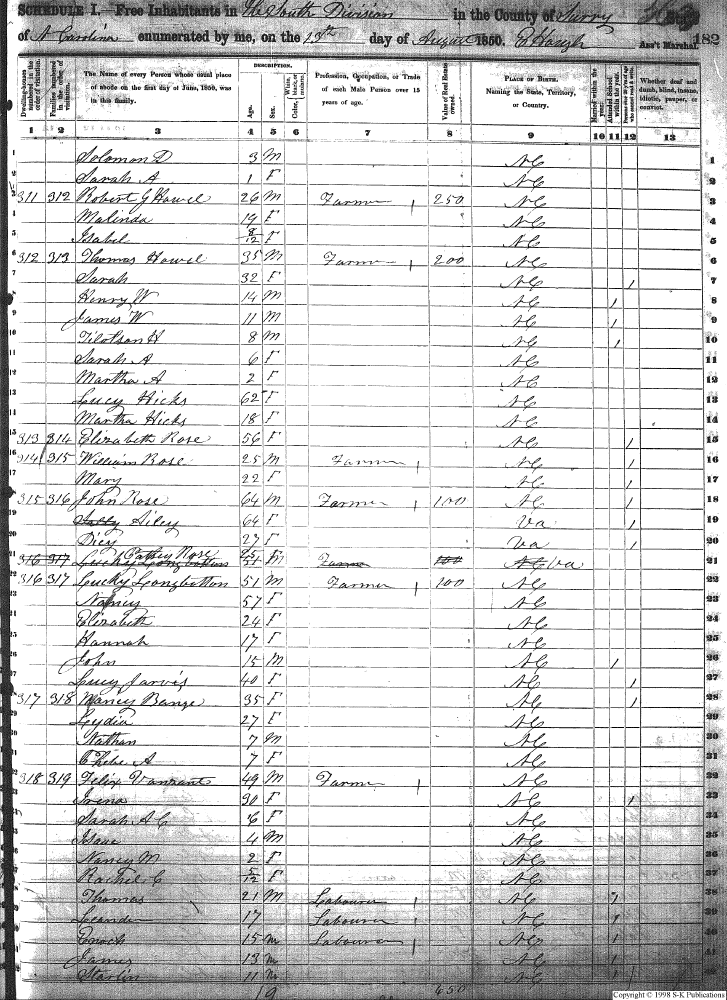 SCHEDULE I.—Free Inhabitants in The South Division in the County of Surry State
of N Carolina enumerated by me, on the 12th day of August 1850. Ass't Marshal. 182
Dwelling-houses numbered in the order of visitation.
Families numbered in the order of visitation.
The Name of every Person whose usual place of abode on the first day of June, 1850, was in this family.
DESCRIPTION.
Age.
Sex.
Color, White, black, or mulatto.
Profession, Occupation, or Trade of each Male Person over 15 years of age.
Value of Real Estate owned.
PLACE OF BIRTH.
Naming the State, Territory, or Country.
Married within the year.
Attended School within the year.
Persons over 20 y'rs of age who cannot read & write.
Whether deaf and dumb, blind, insane, idiotic, pauper, or convict.
1 2 3 4 5 6 7 8 9 10 11 12 13
1 Solomon D 3 M NC 1
2 Sarah A 1 F NC 2
3 311 312 Robert G Howel 26 M Farmer 1 250 NC 3
4 Malinda 19 F NC 4
5 Isabel 8/12 F NC 5
6 312 313 Thomas Howel 35 M Farmer 1 200 NC 6
7 Sarah 32 F NC 1 7
8 Henry W 14 M NC 1 8
9 James W 11 M NC 1 9
10 Tilotson H 8 M NC 1 10
11 Sarah A 6 F NC 11
12 Martha A 2 F NC 12
13 Lucy Hicks 62 F NC 13
14 Martha Hicks 18 F NC 14
15 313 314 Elizabeth Rose 56 F NC 1 15
16 314 315 William Rose 25 M Farmer 1 NC 1 16
17 Mary 22 F NC 1 17
18 315 316 John Rose 64 M Farmer 1 100 NC 1 18
19 Sally Siley 64 F Va 1 19
20 Dicy 27 F Va 1 20
21 316 317 Lucky Longbottom Rose 51 M Farmer 100 NC Va 21
22 316 317 Lucky Longbottom 51 M Farmer 1 100 NC 22
23 Nancy 57 F NC 23
24 Elizabeth 24 F NC 24
25 Hannah 17 F NC 25
26 John 15 M NC 1 26
27 Lucy Jarvis 40 F NC 1 27
28 317 318 Nancy Bange 35 F NC 1 28
29 Lydia 27 F NC 29
30 Nathan 7 M NC 30
31 Chloe A 7 F NC 31
32 318 319 Felix Vanzant 49 M Farmer 1 NC 32
33 Irena 30 F NC 1 33
Sarah A C 6 F NC 34
Isaac 4 M NC 35
Nancy M 2 F NC 36
Rachel C 5/12 F NC 37
Thomas 21 M Labourer 1 NC 1 38
Leander 17 Labourer 1 NC 1
Enoch 15 M Labourer 1 NC 1
James 13 M NC 1 41
Starlin 11 M NC 1
19 650
Copyright © 1998 S-K Publications